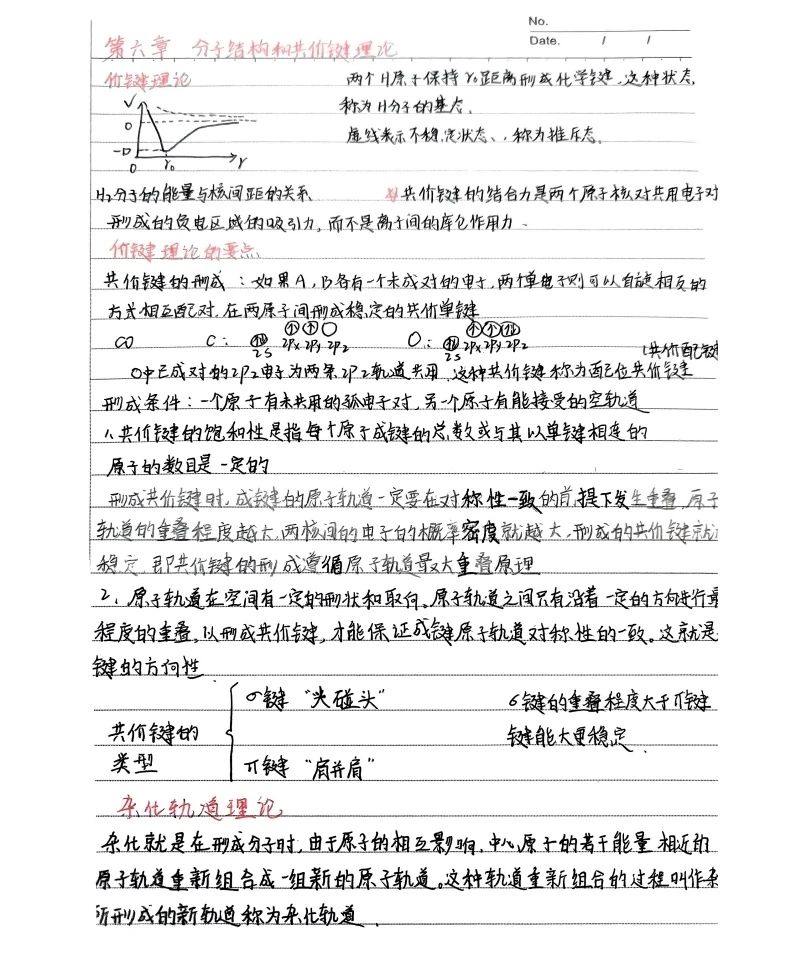 No.
Date. / /
第六章 分子结构和共价键理论
价键理论
两个H原子保持r₀距离形成化学键,这种状态,
称为H分子的基态,
虚线表示不稳定状态、,称为推斥态。
V
0
-D
0 r₀ r
H₂分子的能量与核间距的关系 共价键的结合力是两个原子核对共用电子对
形成的负电区域的吸引力,而不是离子间的库仑作用力.
价键理论的要点
共价键的形成:如果A,B各有一个未成对的电子,两个单电子则可以自旋相反的
方式相互配对,在两原子间形成稳定的共价单键
CO C: 2s 2Px 2Py 2Pz O: 2s 2Px 2Py 2Pz
(共价配键
O中已成对的2Pz电子为两条2Pz轨道共用,这种共价键称为配位共价键
形成条件:一个原子有未共用的孤电子对,另一个原子有能接受的空轨道
1、共价键的饱和性是指每个原子成键的总数或与其以单键相连的
原子的数目是一定的
形成共价键时,成键的原子轨道一定要在对称性一致的前提下发生重叠,原子
轨道的重叠程度越大,两核间的电子的概率密度就越大,形成的共价键就
稳定,即共价键的形成遵循原子轨道最大重叠原理
2、原子轨道在空间有一定的形状和取向。原子轨道之间只有沿着一定的方向进行最
程度的重叠,以形成共价键,才能保证成键原子轨道对称性的一致。这就是
键的方向性
共价键的
类型
σ键 “头碰头”
π键 “肩并肩”
σ键的重叠程度大于π键
键能大更稳定.
杂化轨道理论
杂化就是在形成分子时,由于原子的相互影响,中心原子的若干能量相近的
原子轨道重新组合成一组新的原子轨道。这种轨道重新组合的过程叫作杂
所形成的新轨道称为杂化轨道.